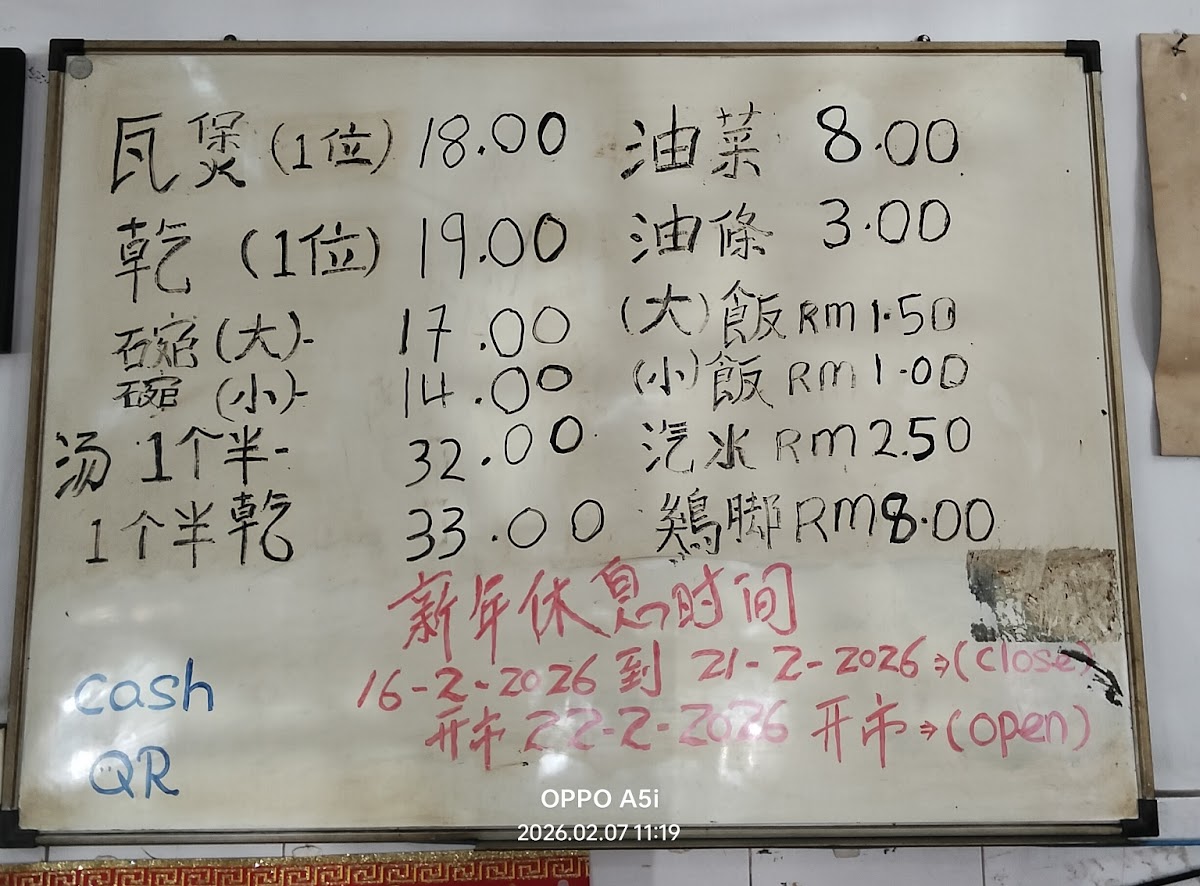 瓦煲 (1位) 18.00
乾 (1位) 19.00
碗 (大)- 17.00
碗 (小)- 14.00
汤 1个半- 32.00
1个半乾 33.00
油菜 8.00
油條 3.00
(大) 飯 RM 1.50
(小) 飯 RM 1.00
汽水 RM 2.50
鷄脚 RM 8.00
新年休息时间
16-2-2026 到 21-2-2026 ⇒ (close)
开市 22-2-2026 开市 ⇒ (open)
cash
QR
OPPO A5i
2026.02.07 11:19